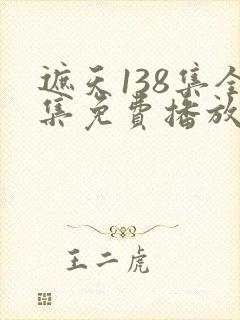 遮天138集全
集免费播放
王二虎